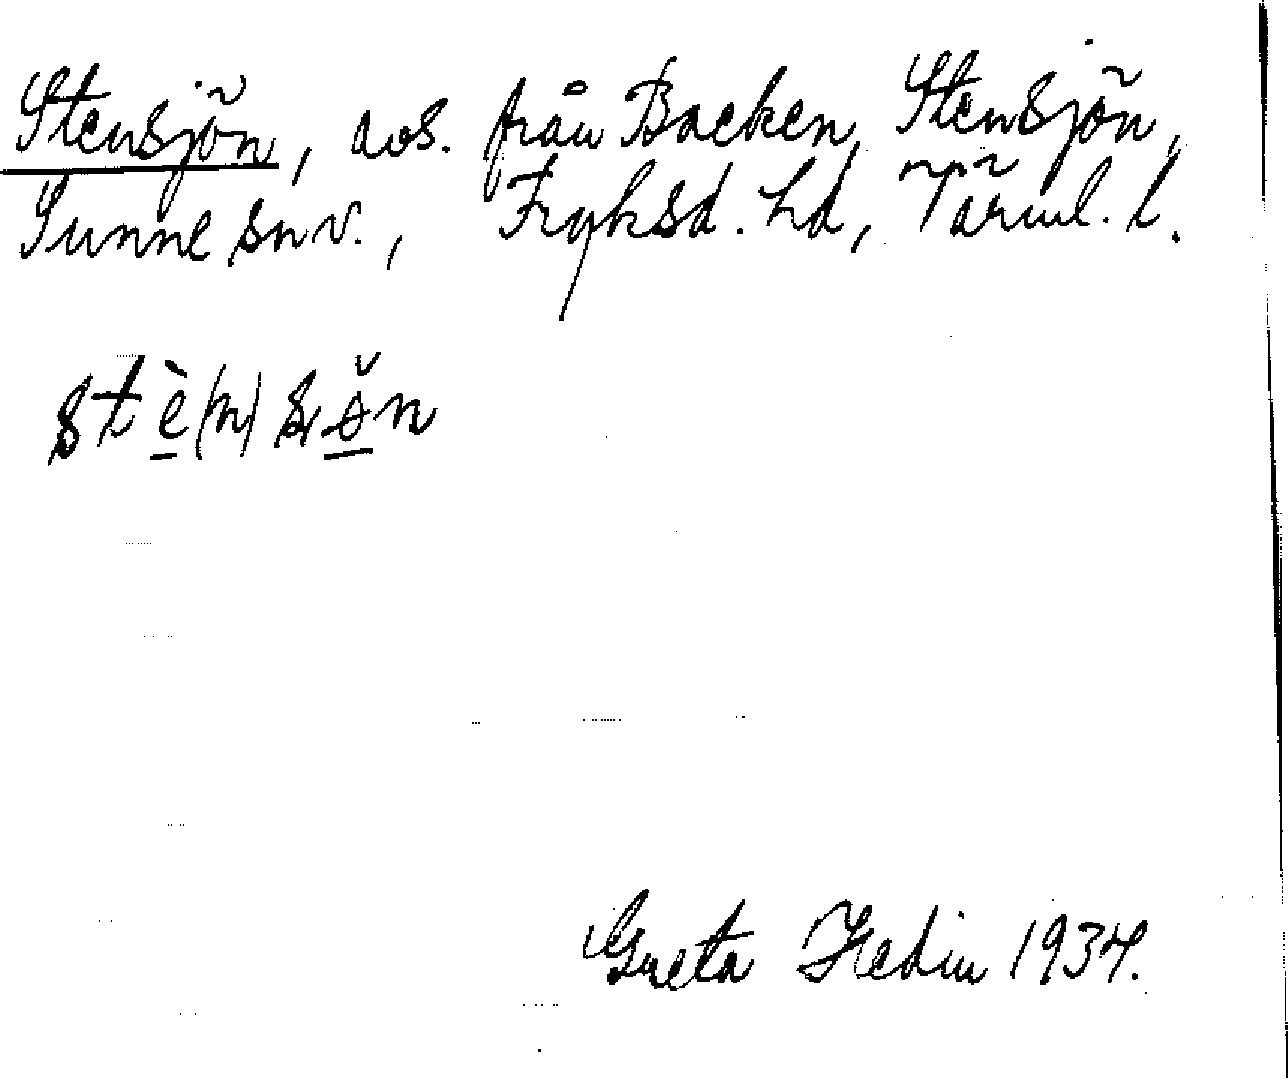 Stensjön, avs. från Backen, Stensjön,
Sunne snv., Fryksd. hd, Värml. l.
stè(n)sǿ̌n
Greta Hedin 1934.